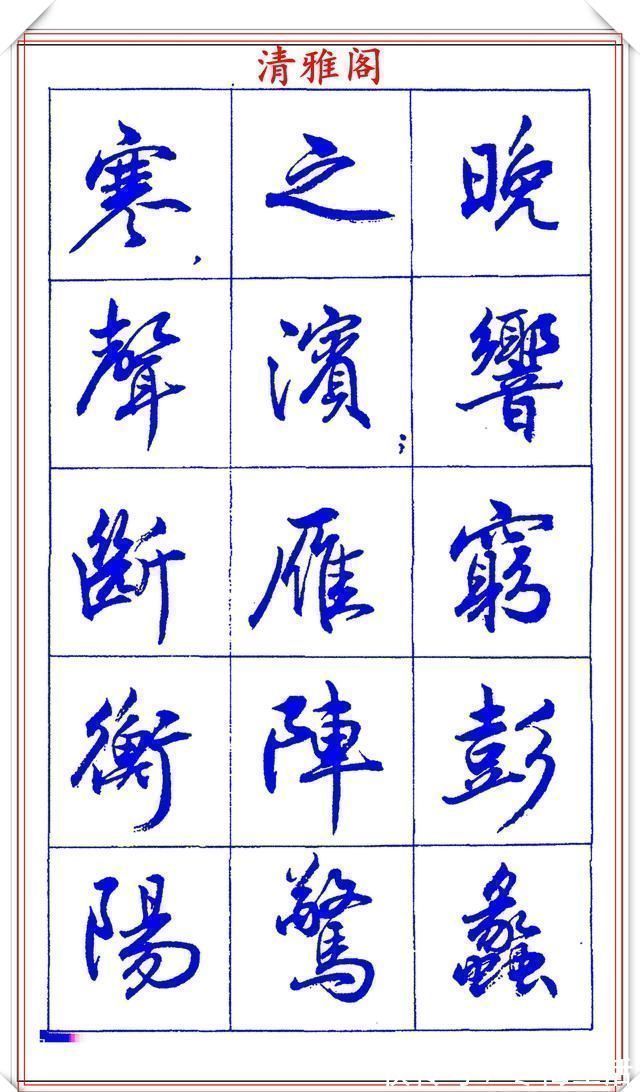 清雅阁
晚響窮彭蠡
之濱；雁陣驚
寒，聲斷衡陽